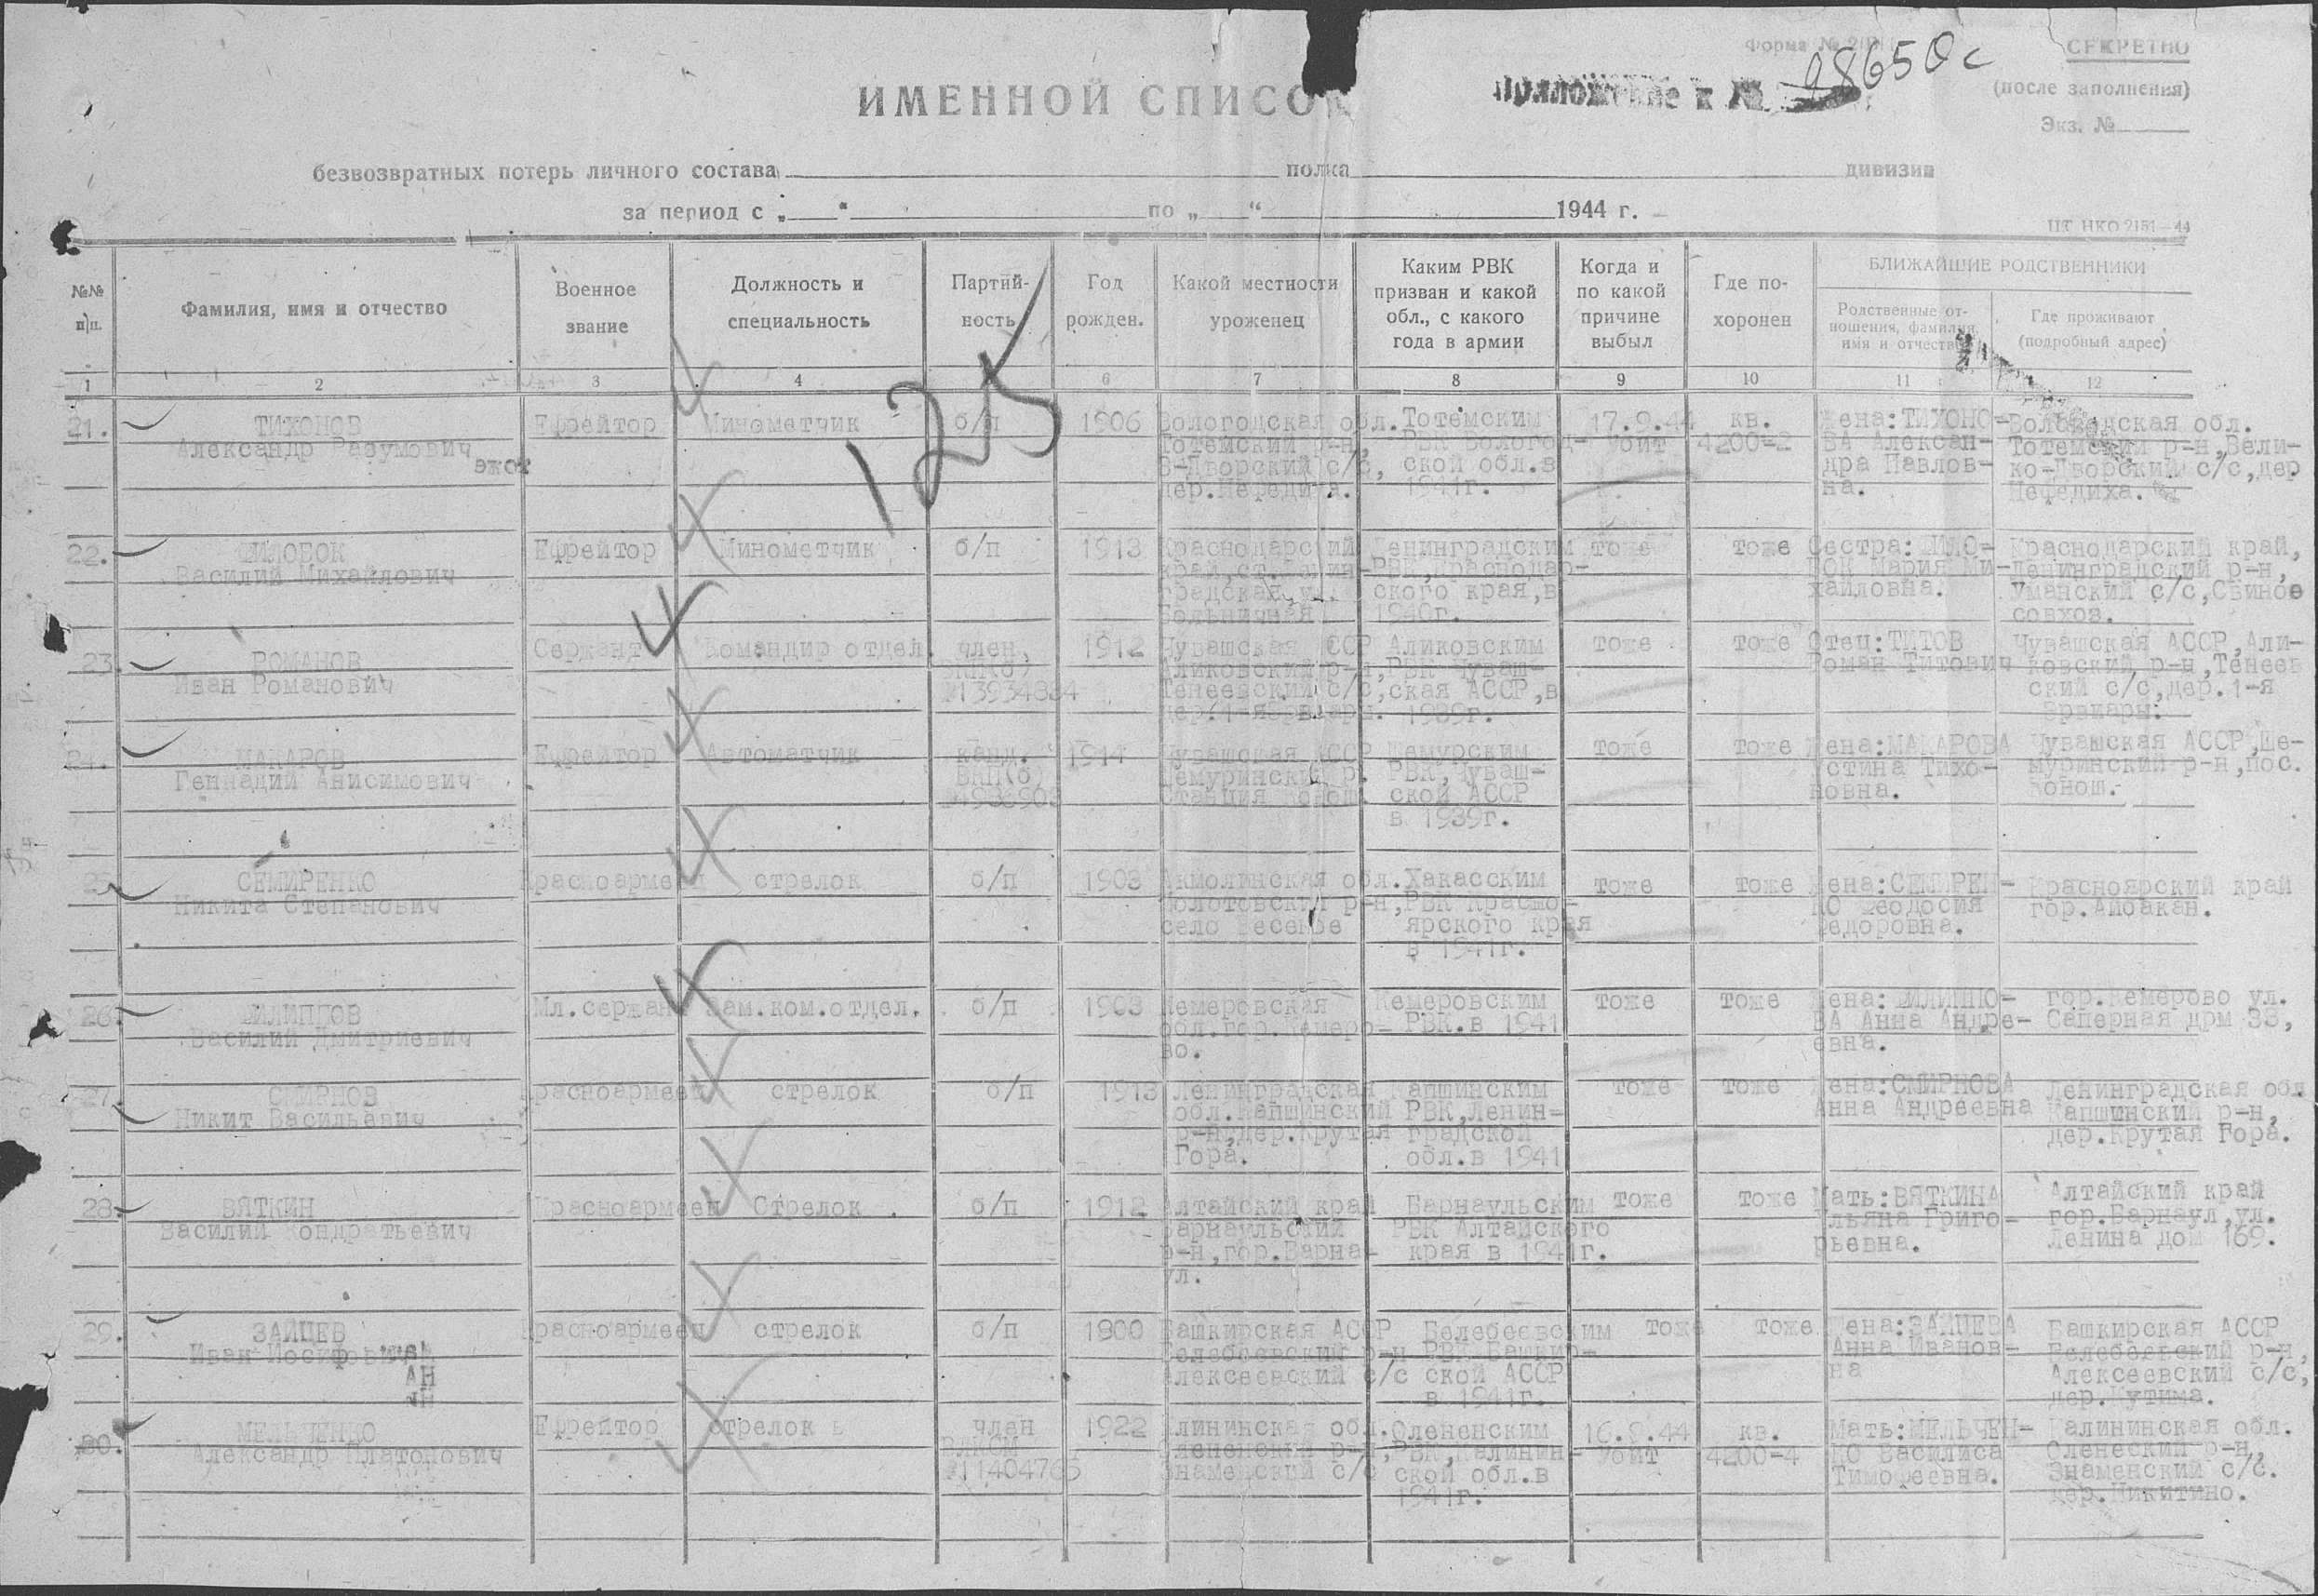 Форма № 2/
СЕКРЕТНО
(после заполнения)
Экз. №
Приложение к №
98650с
ИМЕННОЙ СПИСОК
безвозвратных потерь личного состава полка дивизии
за период с „ “ по „ “ 1944 г.
ЦТ НКО 2151—44
№№ п/п.
Фамилия, имя и отчество
Военное звание
Должность и специальность
Партийность
Год рожден.
Какой местности уроженец
Каким РВК призван и какой обл., с какого года в армии
Когда и по какой причине выбыл
Где похоронен
БЛИЖАЙШИЕ РОДСТВЕННИКИ
Родственные отношения, фамилия, имя и отчество
Где проживают (подробный адрес)
1 2 3 4 6 7 8 9 10 11 12
125
21. ТИХОНОВ Ефрейтор Минометчик б/п 1906 Вологодская обл. Тотемским 17.9.44 кв. Жена:ТИХОНО- Вологодская обл.
Александр Разумович Тотемский р-н, РВК Вологод- убит 4200-2 ВА Алексан- Тотемский р-н,Вели-
В-Дворский с/с, ской обл.в дра Павлов- ко-Дворский с/с,дер
дер. 1941г. на. Нефедиха.
22. Ефрейтор Минометчик б/п 1913 Краснодарский Ленинградским тоже тоже Сестра: Краснодарский край,
Василий Михайлович край,ст.Ленин- РВК,Краснодар- Мария Ми- Ленинградский р-н,
градская,ул. ского края,в хайловна. Уманский с/с,Свиное
Больничная 1940г. совхоз.
23. РОМАНОВ Сержант Командир отдел. член 1912 Чувашская АССР Аликовским тоже тоже Отец:ТИТОВ Чувашская АССР,Али-
Иван Романович ВКП(б) Аликовский р-н, РВК Чуваш- Роман Титович ковский р-н,Тенеев
Тенеевский с/с, ская АССР,в ский с/с,дер.1-я
1939г.
24. МАКАРОВ Ефрейтор Автоматчик канд. 1914 Чувашская АССР Шемурским тоже тоже Жена:МАКАРОВА Чувашская АССР,Ше-
Геннадий Анисимович ВКП(б) РВК,Чуваш- Устина Тихо- муринский р-н,пос.
Станция ской АССР новна.
в 1939г.
25. СЕМИРЕНКО Красноармеец стрелок б/п 1903 Акмолинская обл. Хакасским тоже тоже Жена:СЕМИРЕН- Красноярский край
Никита Степанович Молотовский р-н, РВК Красно- КО Феодосия гор.Абакан.
село ярского края Федоровна.
в 1941г.
26. ФИЛИППОВ Мл.сержант Зам.ком.отдел. б/п 1903 Кемеровская Кемеровским тоже тоже Жена:ФИЛИППО- гор.Кемерово ул.
Василий Дмитриевич обл.гор.Кемеро- РВК.в 1941 ВА Анна Андре- Саперная дрм 33,
во. евна.
27. СМИРНОВ Красноармеец стрелок б/п 1913 Ленинградская Капшинским тоже тоже Жена:СМИРНОВА Ленинградская обл
Никит Васильевич обл.Капшинский РВК,Ленин- Анна Андреевна Капшинский р-н,
р-н,дер.Крутая градской дер.Крутая Гора.
Гора. обл.в 1941
28. ВЯТКИН Красноармеец Стрелок б/п 1912 Алтайский край Барнаульским тоже тоже Мать:ВЯТКИНА Алтайский край
Василий Кондратьевич Барнаульский РВК Алтайского Ульяна Григо- гор.Барнаул,ул.
р-н,гор.Барна- края в 1941г. рьевна. Ленина дом 169.
ул.
29. ЗАЙЦЕВ Красноармеец стрелок б/п 1900 Башкирская АССР Белебеевским тоже тоже Жена:ЗАЙЦЕВА Башкирская АССР
Иван Иосифович Белебеевский р-н РВК Башкир- Анна Иванов- Белебеевский р-н,
Алексеевский с/с ской АССР на Алексеевский с/с,
в 1941г. дер.
30. Ефрейтор стрелок член 1922 Калининская обл. Олененским 16.9.44 кв. Мать:МЕЛЬЧЕН- Калининская обл.
Александр Платонович ВЛКСМ Олененский р-н, РВК,Калинин- убит 4200-4 КО Василиса Оленеский р-н,
Знаменский с/с ской обл.в Тимофеевна. Знаменский с/с.
1941г. дер.Никитино.